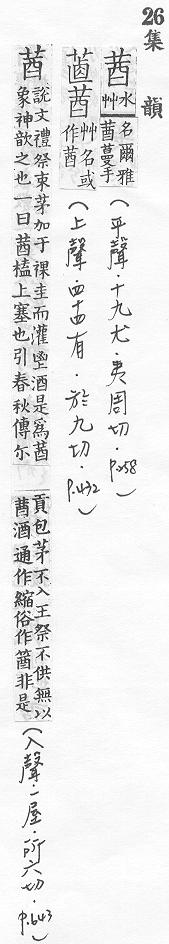 26 集韻
莤 水艸名爾雅
莤蔓于
(平聲·十九尤·夷周切·p.258)
莤 艸名或
作莤
(上聲·四十四有·於九切·p.432)
莤 說文禮祭束茅加于祼圭而灌鬯酒是爲莤
象神歆之也一曰莤榼上塞也引春秋傳尔
貢包茅不入王祭不供無以
莤酒通作縮俗作非是
(入聲·一屋·所六切·p.643)